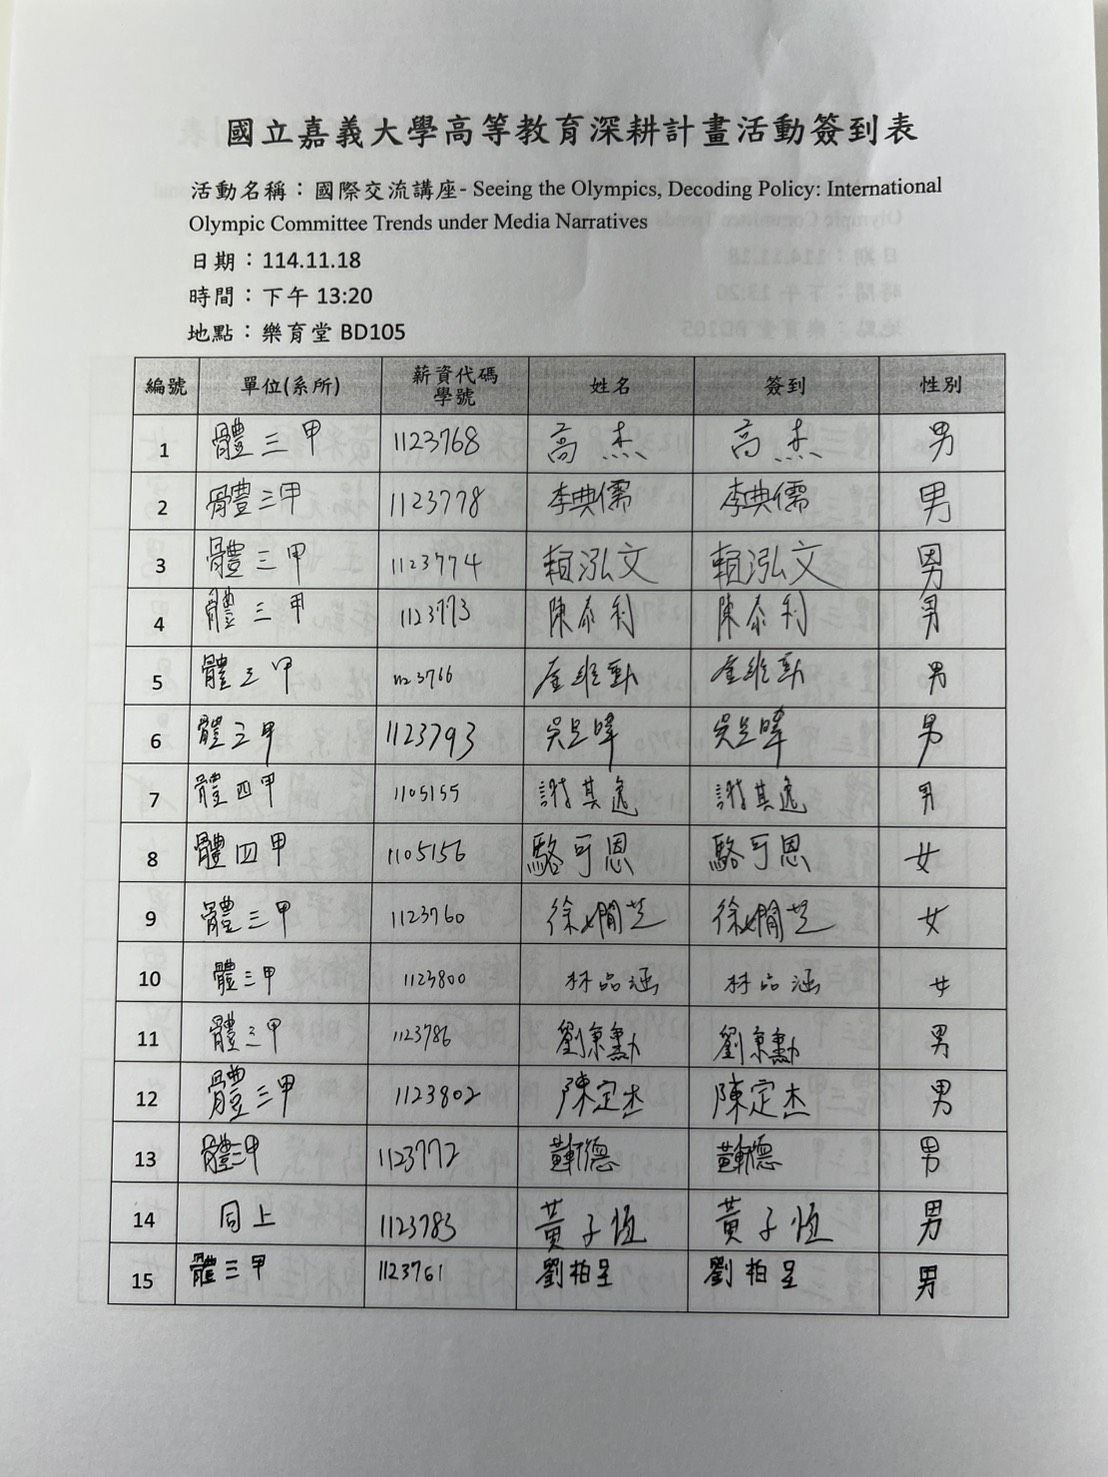 國立嘉義大學高等教育深耕計畫活動簽到表
活動名稱：國際交流講座- Seeing the Olympics, Decoding Policy: International
Olympic Committee Trends under Media Narratives
日期：114.11.18
時間：下午 13:20
地點：樂育堂 BD105
編號 單位(系所) 薪資代碼 學號 姓名 簽到 性別
1 體三甲 1123768 高杰 高杰 男
2 體三甲 1123778 李典儒 李典儒 男
3 體三甲 1123774 賴泓文 賴泓文 男
4 體三甲 1123773 陳泰利 陳泰利 男
5 體三甲 1123766 男
6 體三甲 1123793 男
7 體四甲 1105155 謝其逸 謝其逸 男
8 體四甲 1105156 駱可恩 駱可恩 女
9 體三甲 1123760 徐嫺芝 徐嫺芝 女
10 體三甲 1123800 林品涵 林品涵 女
11 體三甲 1123786 劉秉勳 劉秉勳 男
12 體三甲 1123802 陳定杰 陳定杰 男
13 體三甲 1123772 男
14 同上 1123783 黃子恆 黃子恆 男
15 體三甲 1123761 劉柏呈 劉柏呈 男